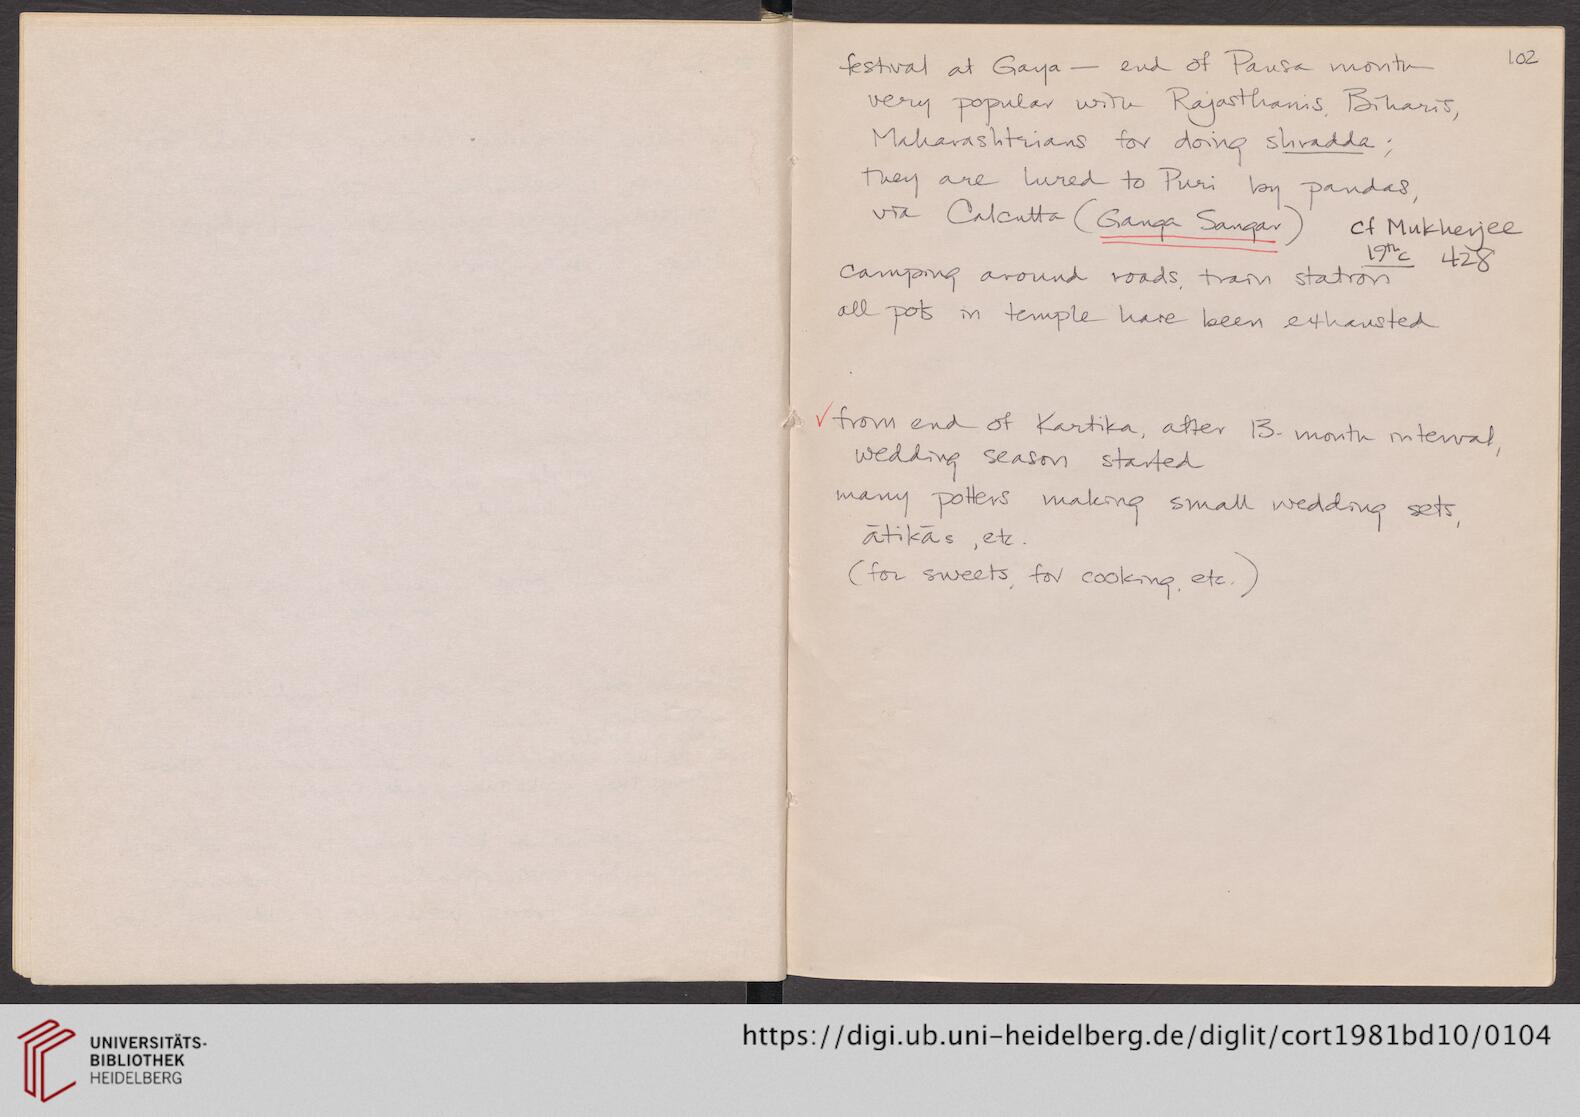 102
festival at Gaya — end of Pausa month
very popular with Rajasthanis, Biharis,
Maharashtrians for doing shradda ;
they are lured to Puri by pandas,
via Calcutta (Ganga Sangar)
cf Mukherjee
19th c 428
camping around roads, train station
all pots in temple have been exhausted
✓ from end of Kartika, after 13-month interval,
wedding season started
many potters making small wedding sets,
ātikās, etc.
(for sweets, for cooking, etc.)
UNIVERSITÄTS-
BIBLIOTHEK
HEIDELBERG
https://digi.ub.uni-heidelberg.de/diglit/cort1981bd10/0104